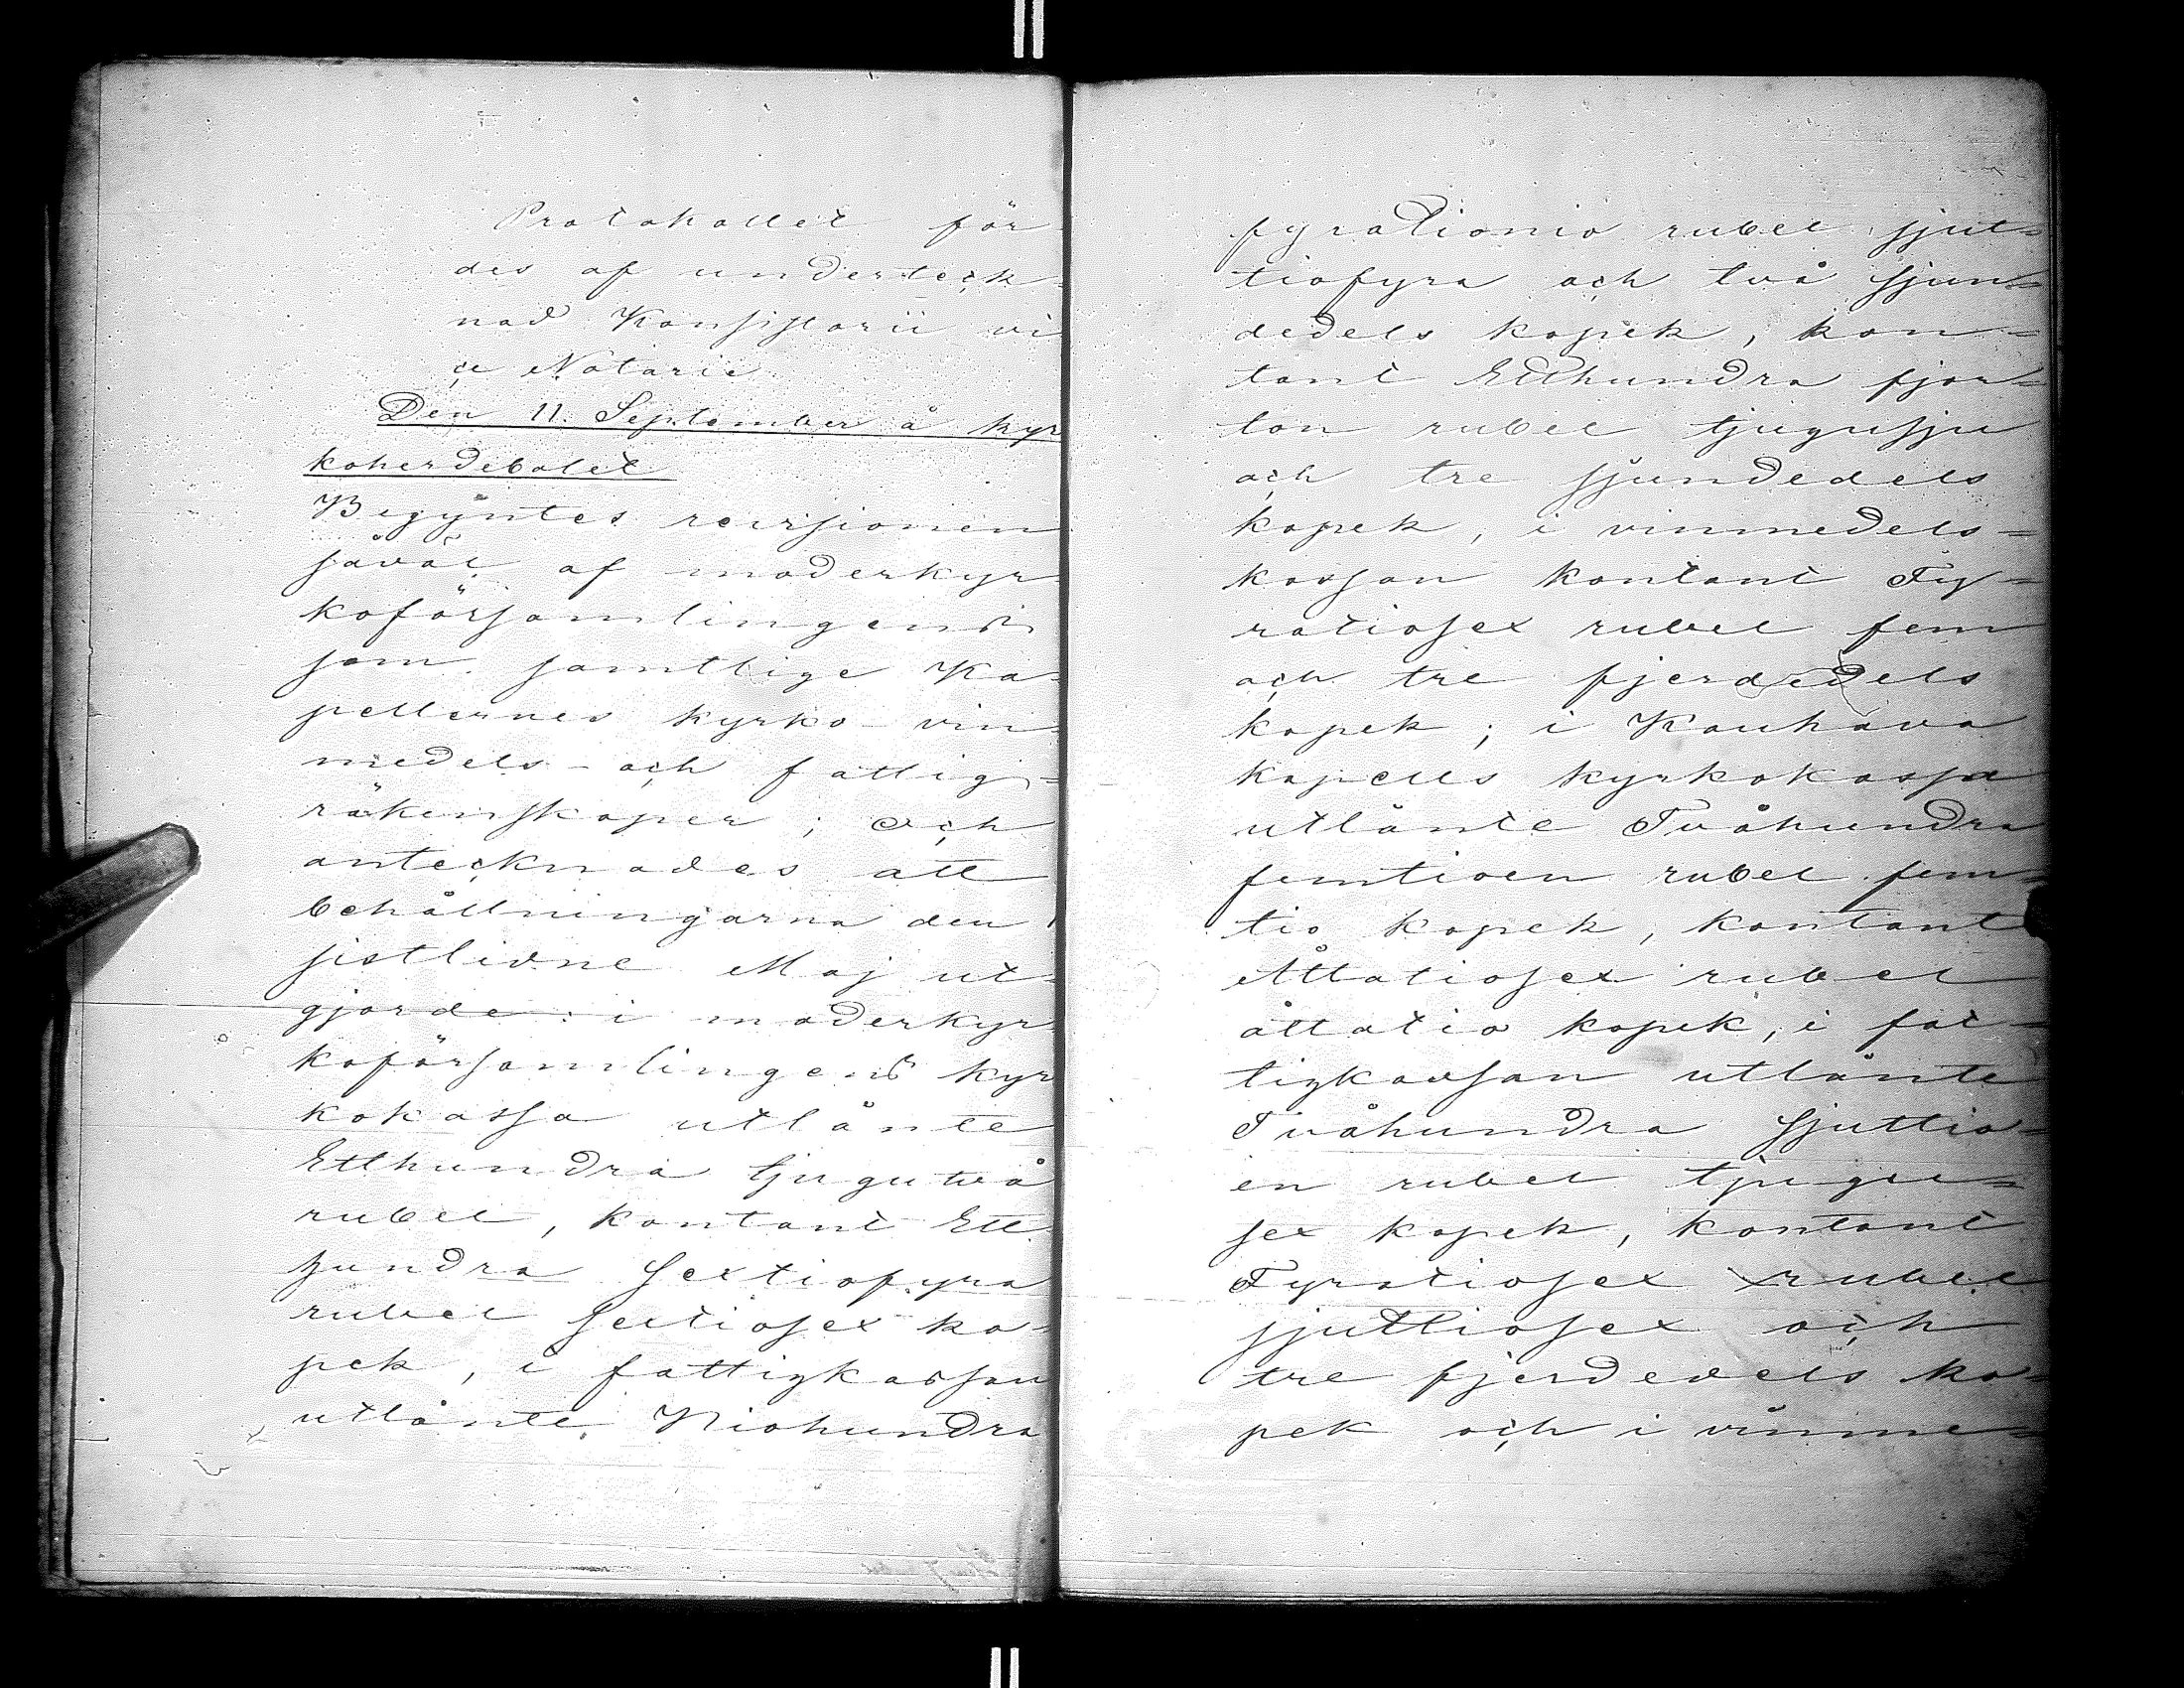 Protokollet för
des af underteck-
nad Konsistorii vi
ce Notarie
Den 11. September å kyr
koherdebolet
Begyntes revisionen
såväl af moderkyr
koförsamlingens
som samtlige Ka-
pellernes kyrko- vin
medels- och fattig-
räkenskaper; och
antecknades att
behållningarna den 1
sistlidne Maj ut-
gjorde: i moderkyr
koförsamlingens kyr
kokassa utlånte
Etthundra tjugutvå
rubel, kontant Ett
hundra sextiofyra
rubel sextiosex ko-
pek, i fattigkassan
utlånte Niohundra
fyrationio rubel sjut-
tiofyra och två sjun-
dedels kopek, kon-
tant Etthundra fjor-
ton rubel tjugusju
och tre sjundedels
kopek, i vinmedels-
kassan kontant Fy-
ratiosex rubel fem
och tre fjerdedels
kopek; i Kauhava
kapells kyrkokassa
utlånte Tvåhundra
femtioen rubel fem-
tio kopek, kontant
Åttatiosex rubel
åttatio kopek, i fat-
tigkassan utlånte
Tvåhundra sjuttio-
en rubel tjugu-
sex kopek, kontant
Fyratiosex rubel
sjuttiosex och
tre fjerdedels ko-
pek och i vinme-